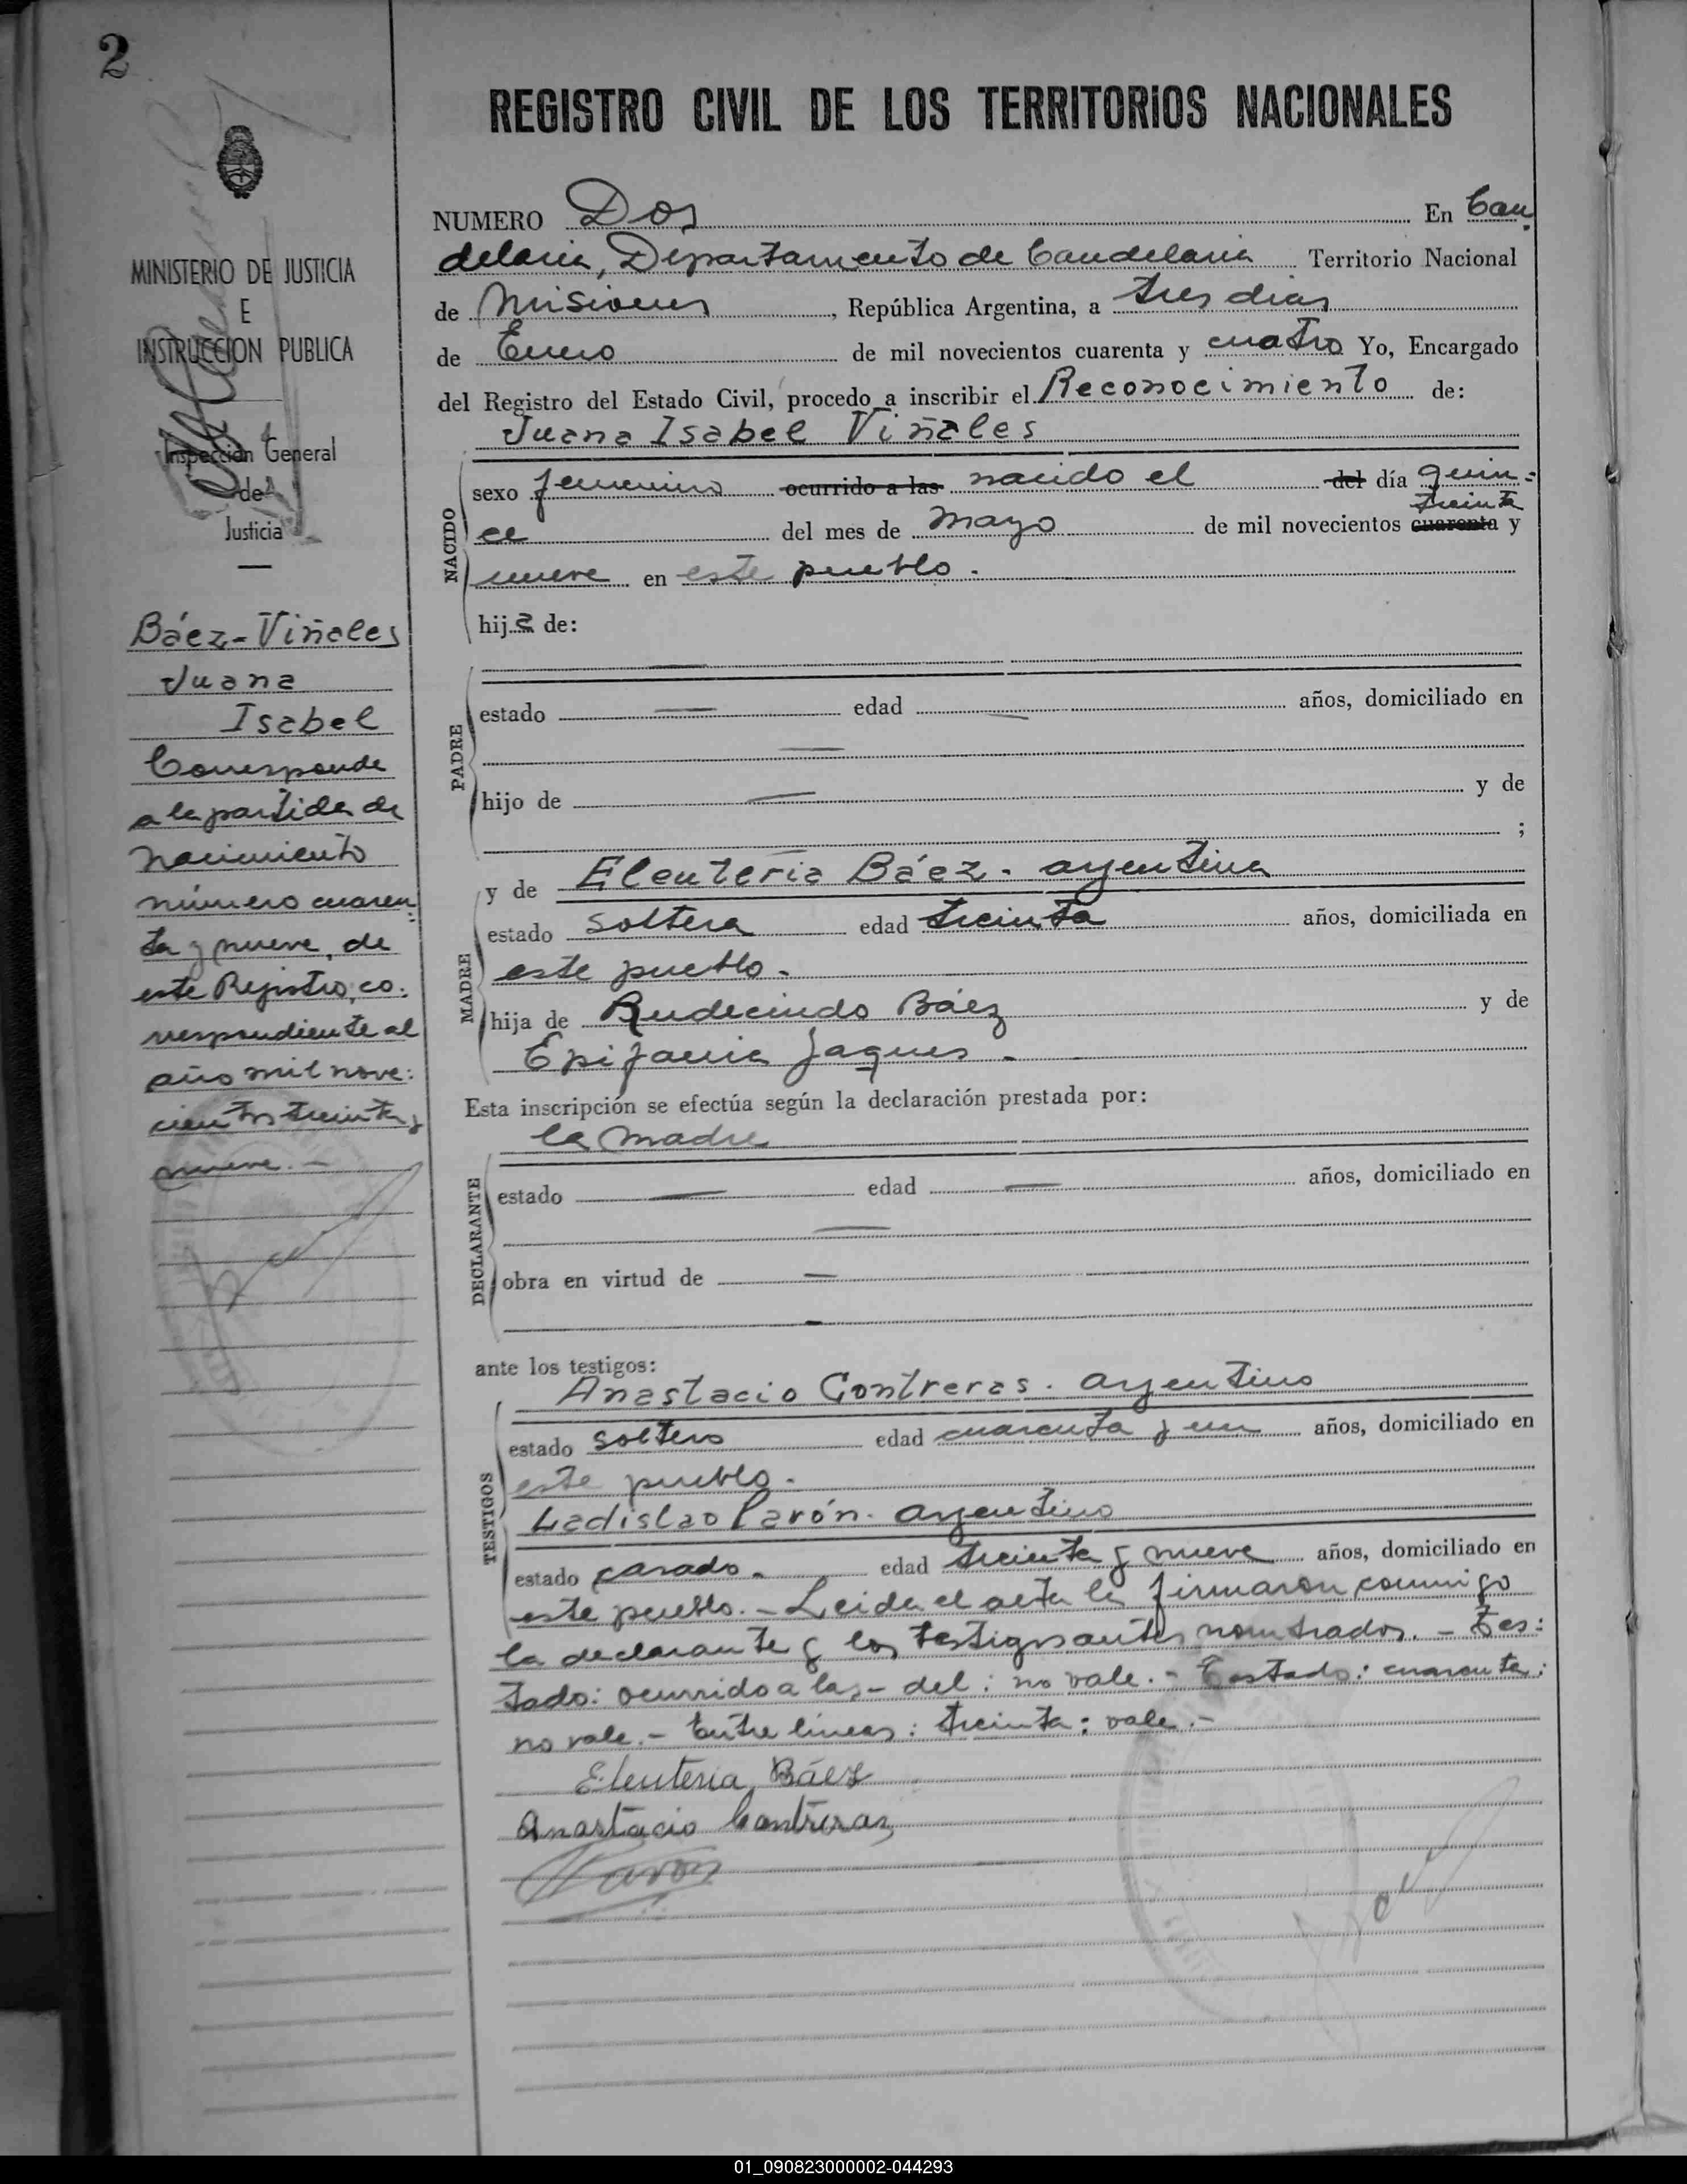 2
REGISTRO CIVIL DE LOS TERRITORIOS NACIONALES
MINISTERIO DE JUSTICIA
E
INSTRUCCION PUBLICA
Inspección General
de
Justicia
Báez-Viñales
Juana
Isabel
Corresponde
a la partida de
nacimiento
número cuaren=
ta y nueve, de
este Registro, co-
rrespondiente al
año mil nove=
cientos treinta y
nueve.-
NUMERO Dos En Can-
delaria, Departamento de Candelaria Territorio Nacional
de Misiones, República Argentina, a tres días
de Enero de mil novecientos cuarenta y cuatro Yo, Encargado
del Registro del Estado Civil, procedo a inscribir el Reconocimiento de:
Juana Isabel Viñales
NACIDO
sexo femenino ocurrido a las nacido el del día quin=
treinta
ce del mes de mayo de mil novecientos cuarenta y
nueve en este pueblo.
hija de:
PADRE
estado — edad — años, domiciliado en
—
hijo de — y de
;
MADRE
y de Eleuteria Báez. argentina
estado soltera edad treinta años, domiciliada en
este pueblo.
hija de Rudecindo Báez y de
Epifania Jaques.
Esta inscripción se efectúa según la declaración prestada por:
la madre
DECLARANTE
estado — edad — años, domiciliado en
—
obra en virtud de —
—
ante los testigos:
TESTIGOS
Anastacio Contreras. argentino
estado soltero edad cuarenta y un años, domiciliado en
este pueblo.
Ladislao Pavón. argentino
estado casado. edad treinta y nueve años, domiciliado en
este pueblo.- Leida el acta la firmaron conmigo
la declarante y los testigos antes nombrados.- Tes=
tado: ocurrido a las- del: no vale.- Testado: cuarenta:
no vale.- Entre líneas: treinta: vale.-
Eleuteria Báez
Anastacio Contreras
Pavon
01_090823000002-044293